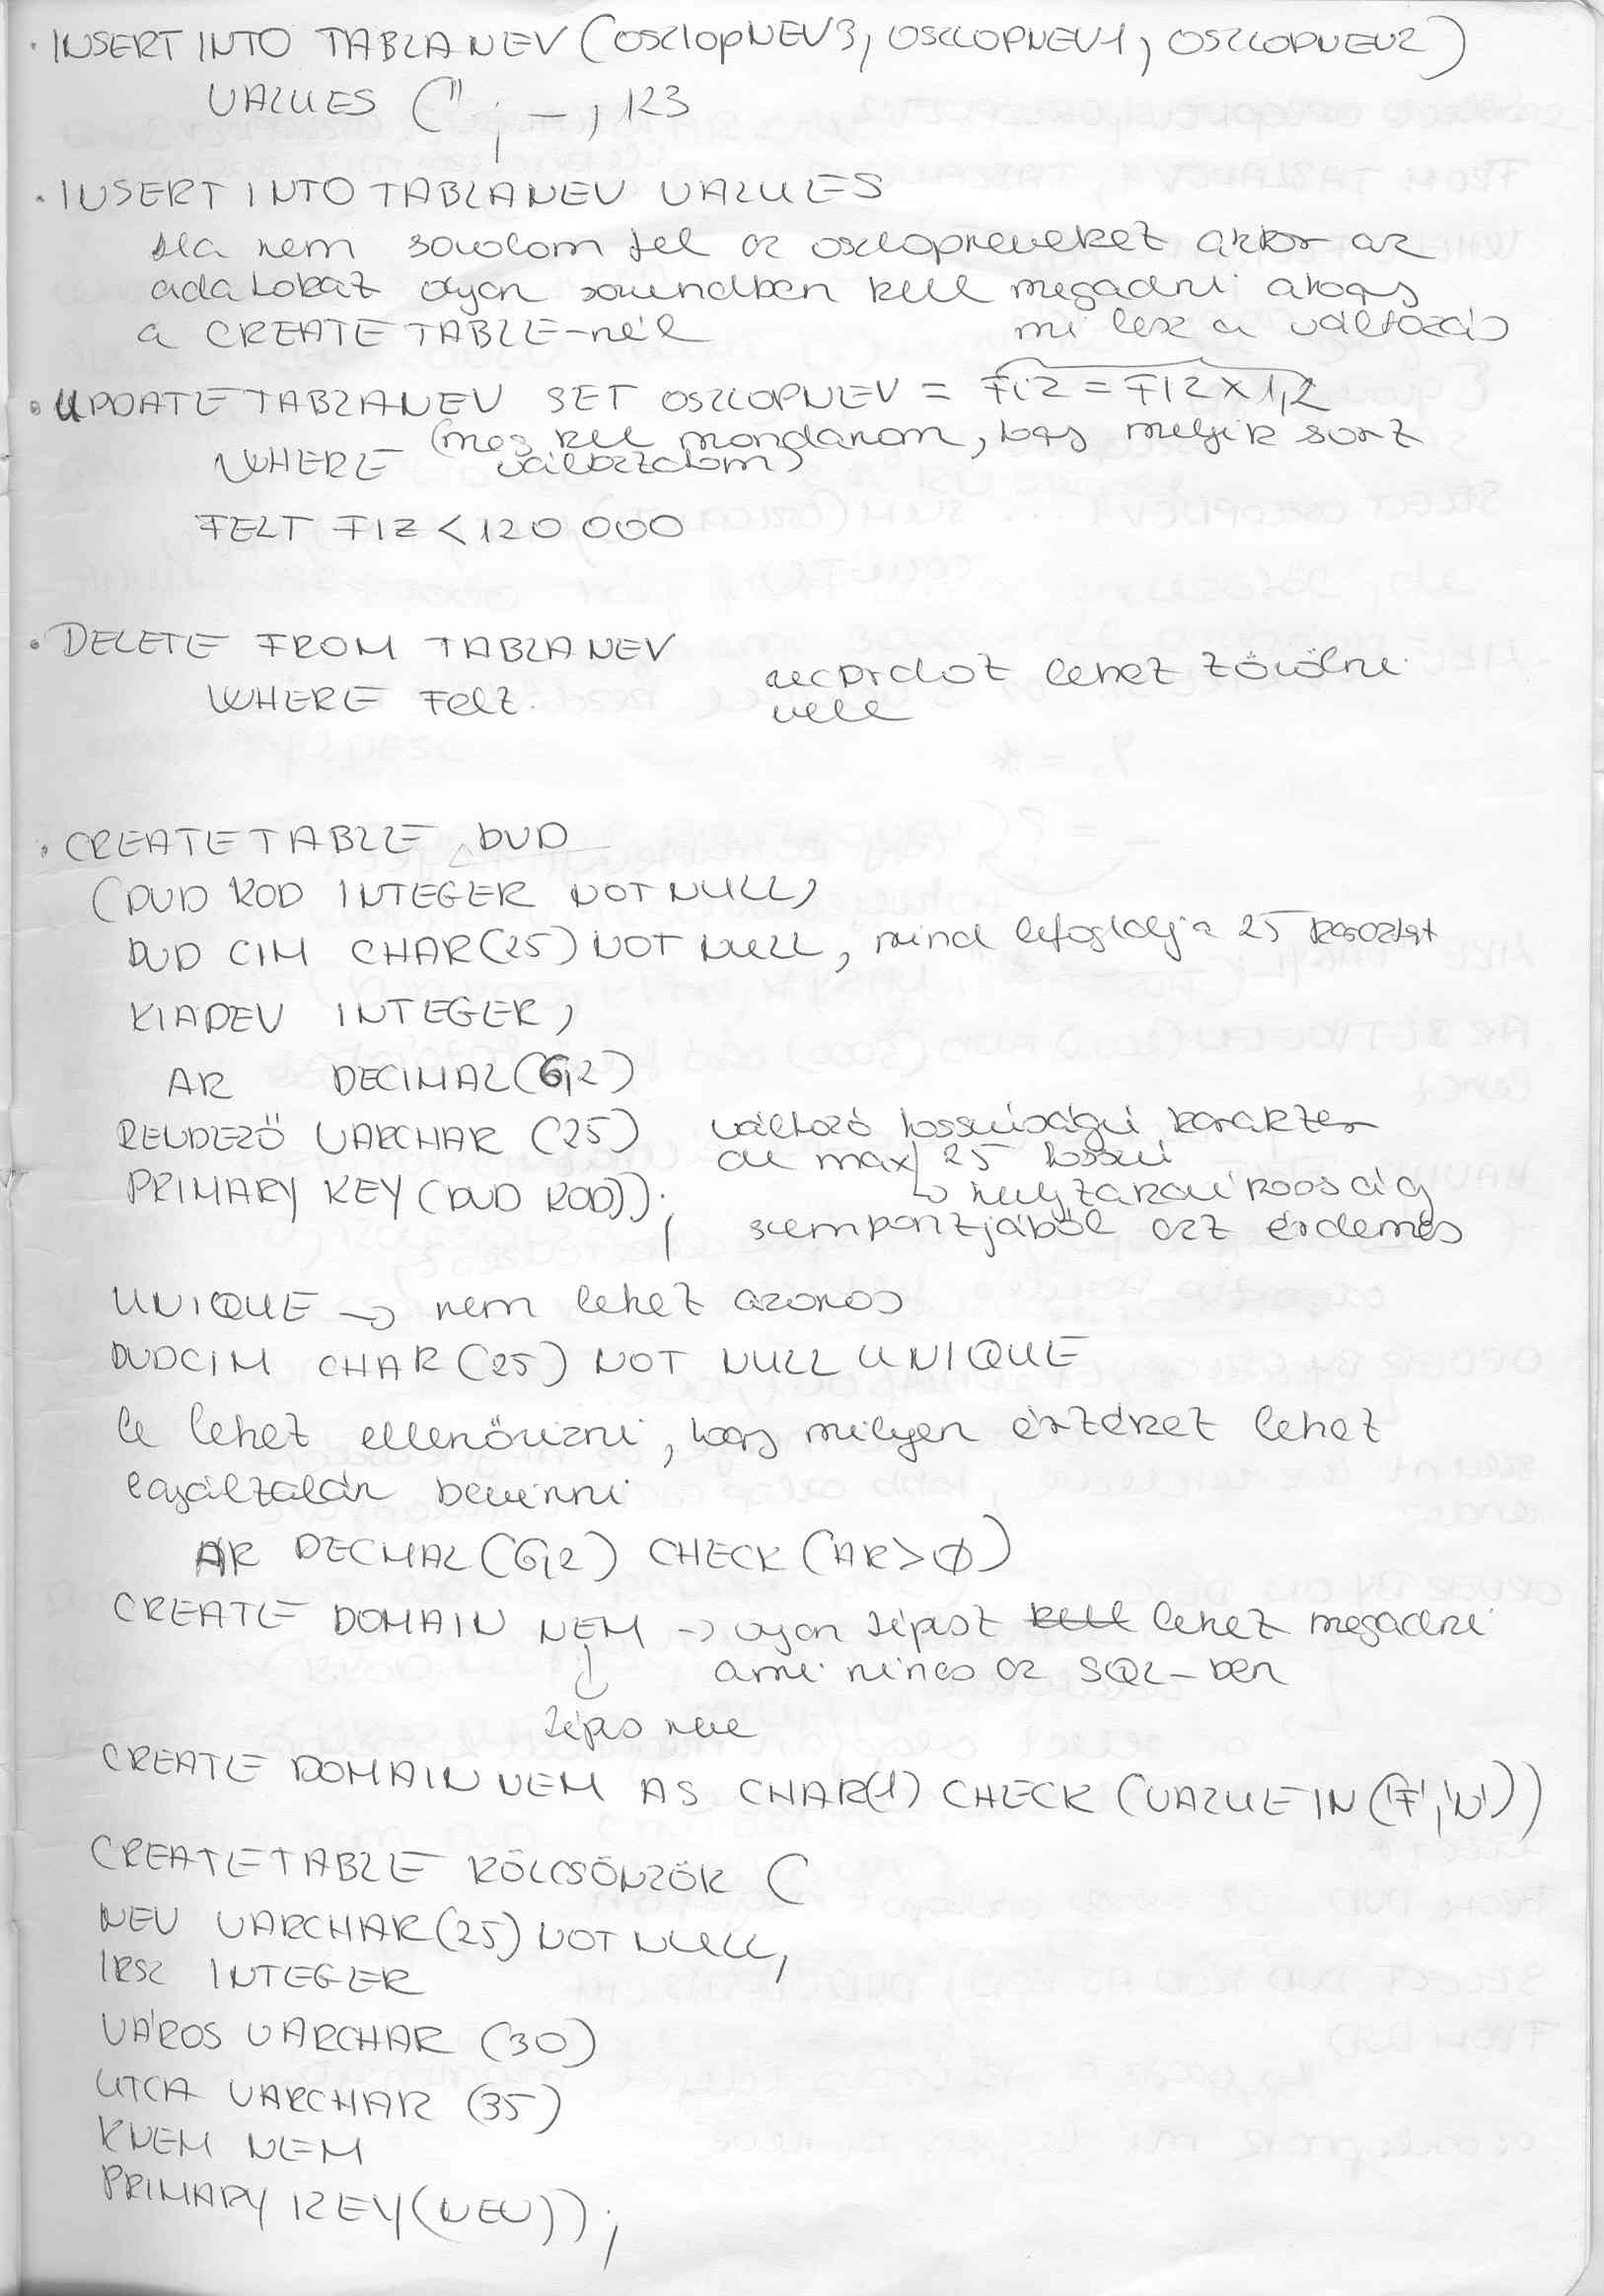 · INSERT INTO TABLANEV (OSZlopNEV3, OSZLOPNEV1, OSZLOPNEV2)
VALUES ('' , – , 123
· INSERT INTO TABLANEV VALUES
Ha nem sorolom fel az oszlopneveket akkor az
adatokat olyan sorrendben kell megadni ahogy
a CREATE TABLE-nél
mi lesz a változás
· UPDATE TABLANEV SET OSZLOPNEV = FIZ = FIZ x 1,2
(meg kell mondanom, hogy melyik sort
WHERE változtatom)
FELT FIZ < 120 000
· DELETE FROM TABLANEV
recordot lehet törölni
WHERE Felt.
vele
· CREATE TABLE DVD
(DVD KOD INTEGER NOT NULL,
DVD CIM CHAR(25) NOT NULL, mind lefoglalja 25
KIADEV INTEGER,
AR DECIMAL(6,2)
RENDEZŐ VARCHAR (25) változó hosszúságú karakter
de max 25 hosszú
PRIMARY KEY (DVD KOD));
↳ helytakarékosság
szempontjából ezt érdemes
UNIQUE → nem lehet azonos
DVDCIM CHAR(25) NOT NULL UNIQUE
le lehet ellenőrizni, hogy milyen értéket lehet
egyáltalán bevinni
AR DECMAL(6,2) CHECK (AR>0)
CREATE DOMAIN NEM → olyan típust kell lehet megadni
ami nincs az SQL-ben
típus neve
CREATE DOMAIN NEM AS CHAR(1) CHECK (VALUE IN ('F','N'))
CREATE TABLE KÖLCSÖNZÖK (
NEV VARCHAR(25) NOT NULL,
IRSZ INTEGER
VÁROS VARCHAR (30)
UTCA VARCHAR (35)
KNEM NEM
PRIMARY KEY(NEV));